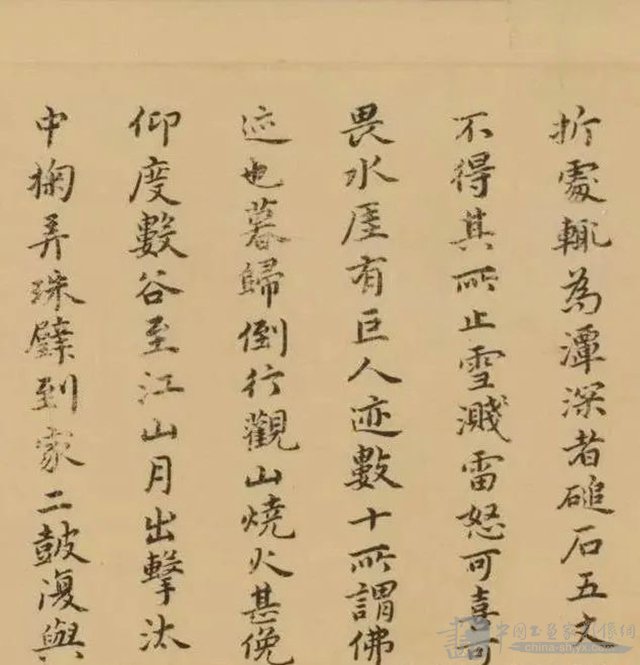 折處輒為潭深者磓石五丈
不得其所止雪濺雷怒可喜可
畏水厓有巨人迹數十所謂佛
迹也暮歸倒行觀山燒火甚俛
仰度數谷至江山月出擊汰
中掬弄珠璧到家二鼓復與
china-shjyx.com